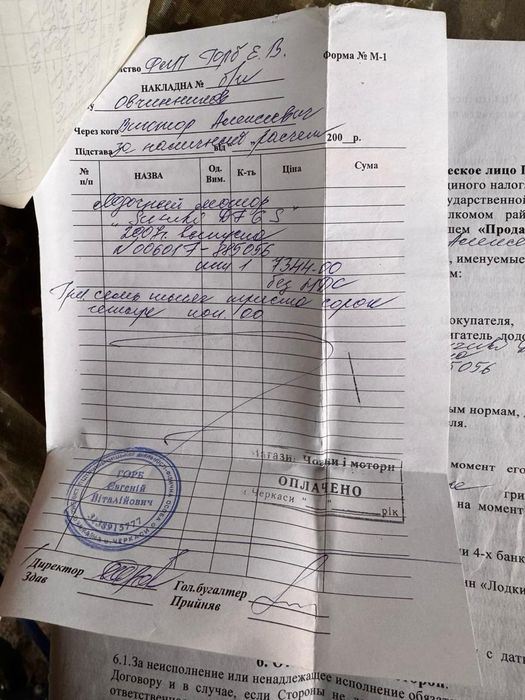 ство ФЛП Горб Е. В.
Форма № М-1
НАКЛАДНА № б/н
у Овчинников
Через кого Виктор Алексеевич
Підстава за наличный расчет від 200 р.
№ п/п НАЗВА Од. Вим. К-ть Ціна Сума
Лодочный мотор
"Suzuki DF 6 S"
выпуска
N 006017-889056
шт 1 7344.00
без НДС
семь тысяч триста сорок
четыре коп. 00
Магазин Човни і мотори
ОПЛАЧЕНО
м Черкаси " " рік
ГОРБ
Євгеній
Віталійович
Директор
Здав
Гол.бугалтер
Прийняв
еское лицо
диного налог
ударственной
лкомом рай
ем «Прода
, именуемые
м:
окупателя,
игатель лодо
ым нормам,
ля.
момент его
грн
на момент
и 4-х банк
ин «Лодки
с дат
6.1.За неисполнение или ненадлежащее исполнение
Договору и в случае, если Стороны не